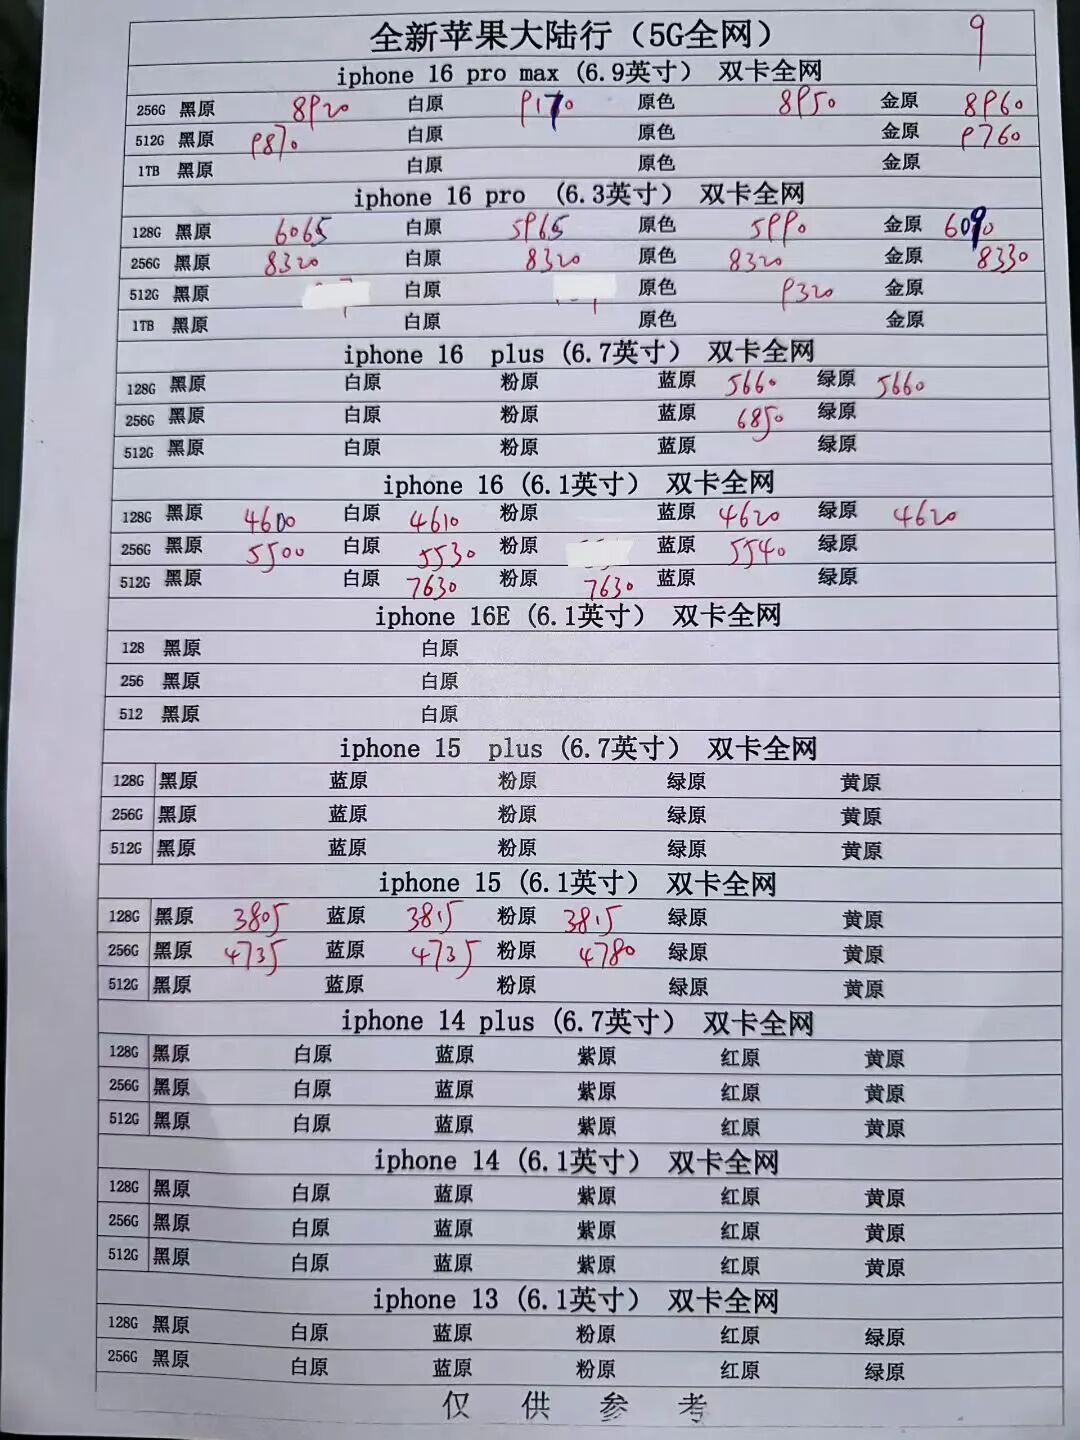 全新苹果大陆行（5G全网） 9
iphone 16 pro max (6.9英寸） 双卡全网
256G 黑原 8920 白原 9170 原色 8950 金原 8960
512G 黑原 9870 白原 原色 金原 9760
1TB 黑原 白原 原色 金原
iphone 16 pro （6.3英寸） 双卡全网
128G 黑原 6065 白原 5965 原色 5990 金原 6090
256G 黑原 8320 白原 8320 原色 8320 金原 8330
512G 黑原 白原 原色 9320 金原
1TB 黑原 白原 原色 金原
iphone 16 plus (6.7英寸） 双卡全网
128G 黑原 白原 粉原 蓝原 5660 绿原 5660
256G 黑原 白原 粉原 蓝原 6850 绿原
512G 黑原 白原 粉原 蓝原 绿原
iphone 16 (6.1英寸） 双卡全网
128G 黑原 4600 白原 4610 粉原 蓝原 4620 绿原 4620
256G 黑原 5500 白原 5530 粉原 蓝原 5540 绿原
512G 黑原 白原 7630 粉原 7630 蓝原 绿原
iphone 16E (6.1英寸） 双卡全网
128 黑原 白原
256 黑原 白原
512 黑原 白原
iphone 15 plus (6.7英寸） 双卡全网
128G 黑原 蓝原 粉原 绿原 黄原
256G 黑原 蓝原 粉原 绿原 黄原
512G 黑原 蓝原 粉原 绿原 黄原
iphone 15 (6.1英寸） 双卡全网
128G 黑原 3805 蓝原 3815 粉原 3815 绿原 黄原
256G 黑原 4735 蓝原 4735 粉原 4780 绿原 黄原
512G 黑原 蓝原 粉原 绿原 黄原
iphone 14 plus (6.7英寸） 双卡全网
128G 黑原 白原 蓝原 紫原 红原 黄原
256G 黑原 白原 蓝原 紫原 红原 黄原
512G 黑原 白原 蓝原 紫原 红原 黄原
iphone 14 (6.1英寸） 双卡全网
128G 黑原 白原 蓝原 紫原 红原 黄原
256G 黑原 白原 蓝原 紫原 红原 黄原
512G 黑原 白原 蓝原 紫原 红原 黄原
iphone 13 (6.1英寸） 双卡全网
128G 黑原 白原 蓝原 粉原 红原 绿原
256G 黑原 白原 蓝原 粉原 红原 绿原
仅供参考